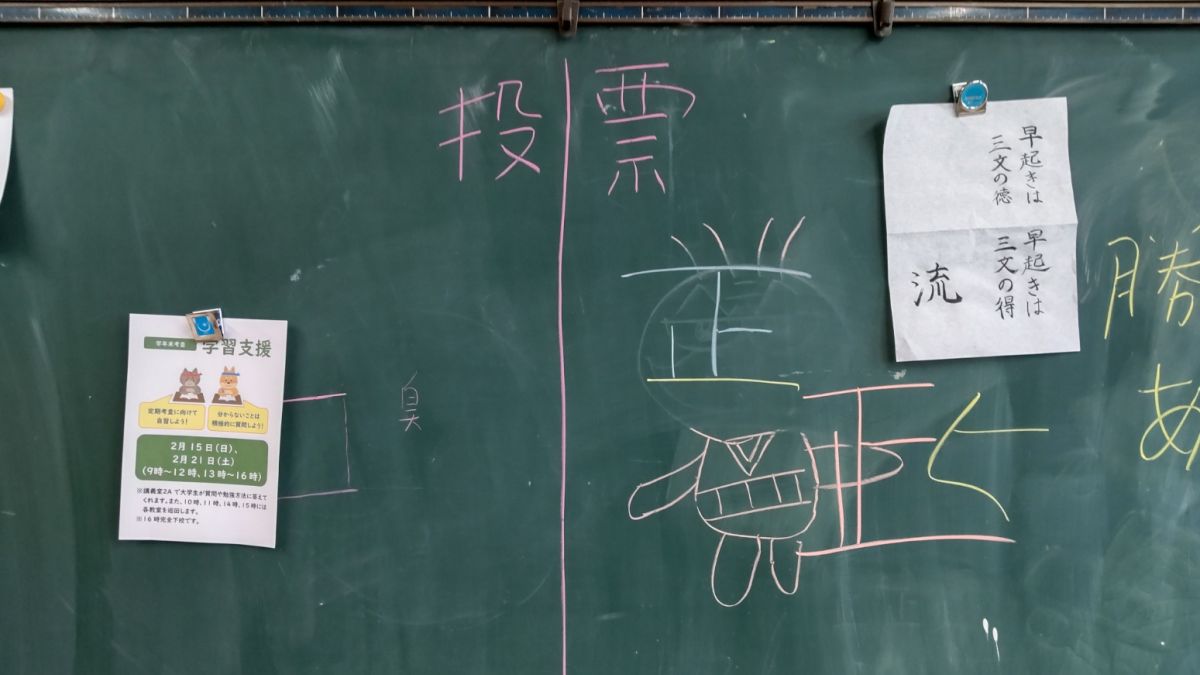 投票
学年末考査
学習支援
定期考査に向けて
自習しよう!
分からないことは
積極的に質問しよう!
2月15日(日)、
2月21日(土)
(9時~12時、13時~16時)
※講義室2Aで大学生が質問や勉強方法に答えて
くれます。また、10時、11時、14時、15時には
各教室を巡回します。
※16時完全下校です。
正
正
早起きは
三文の徳
早起きは
三文の得
流
勝